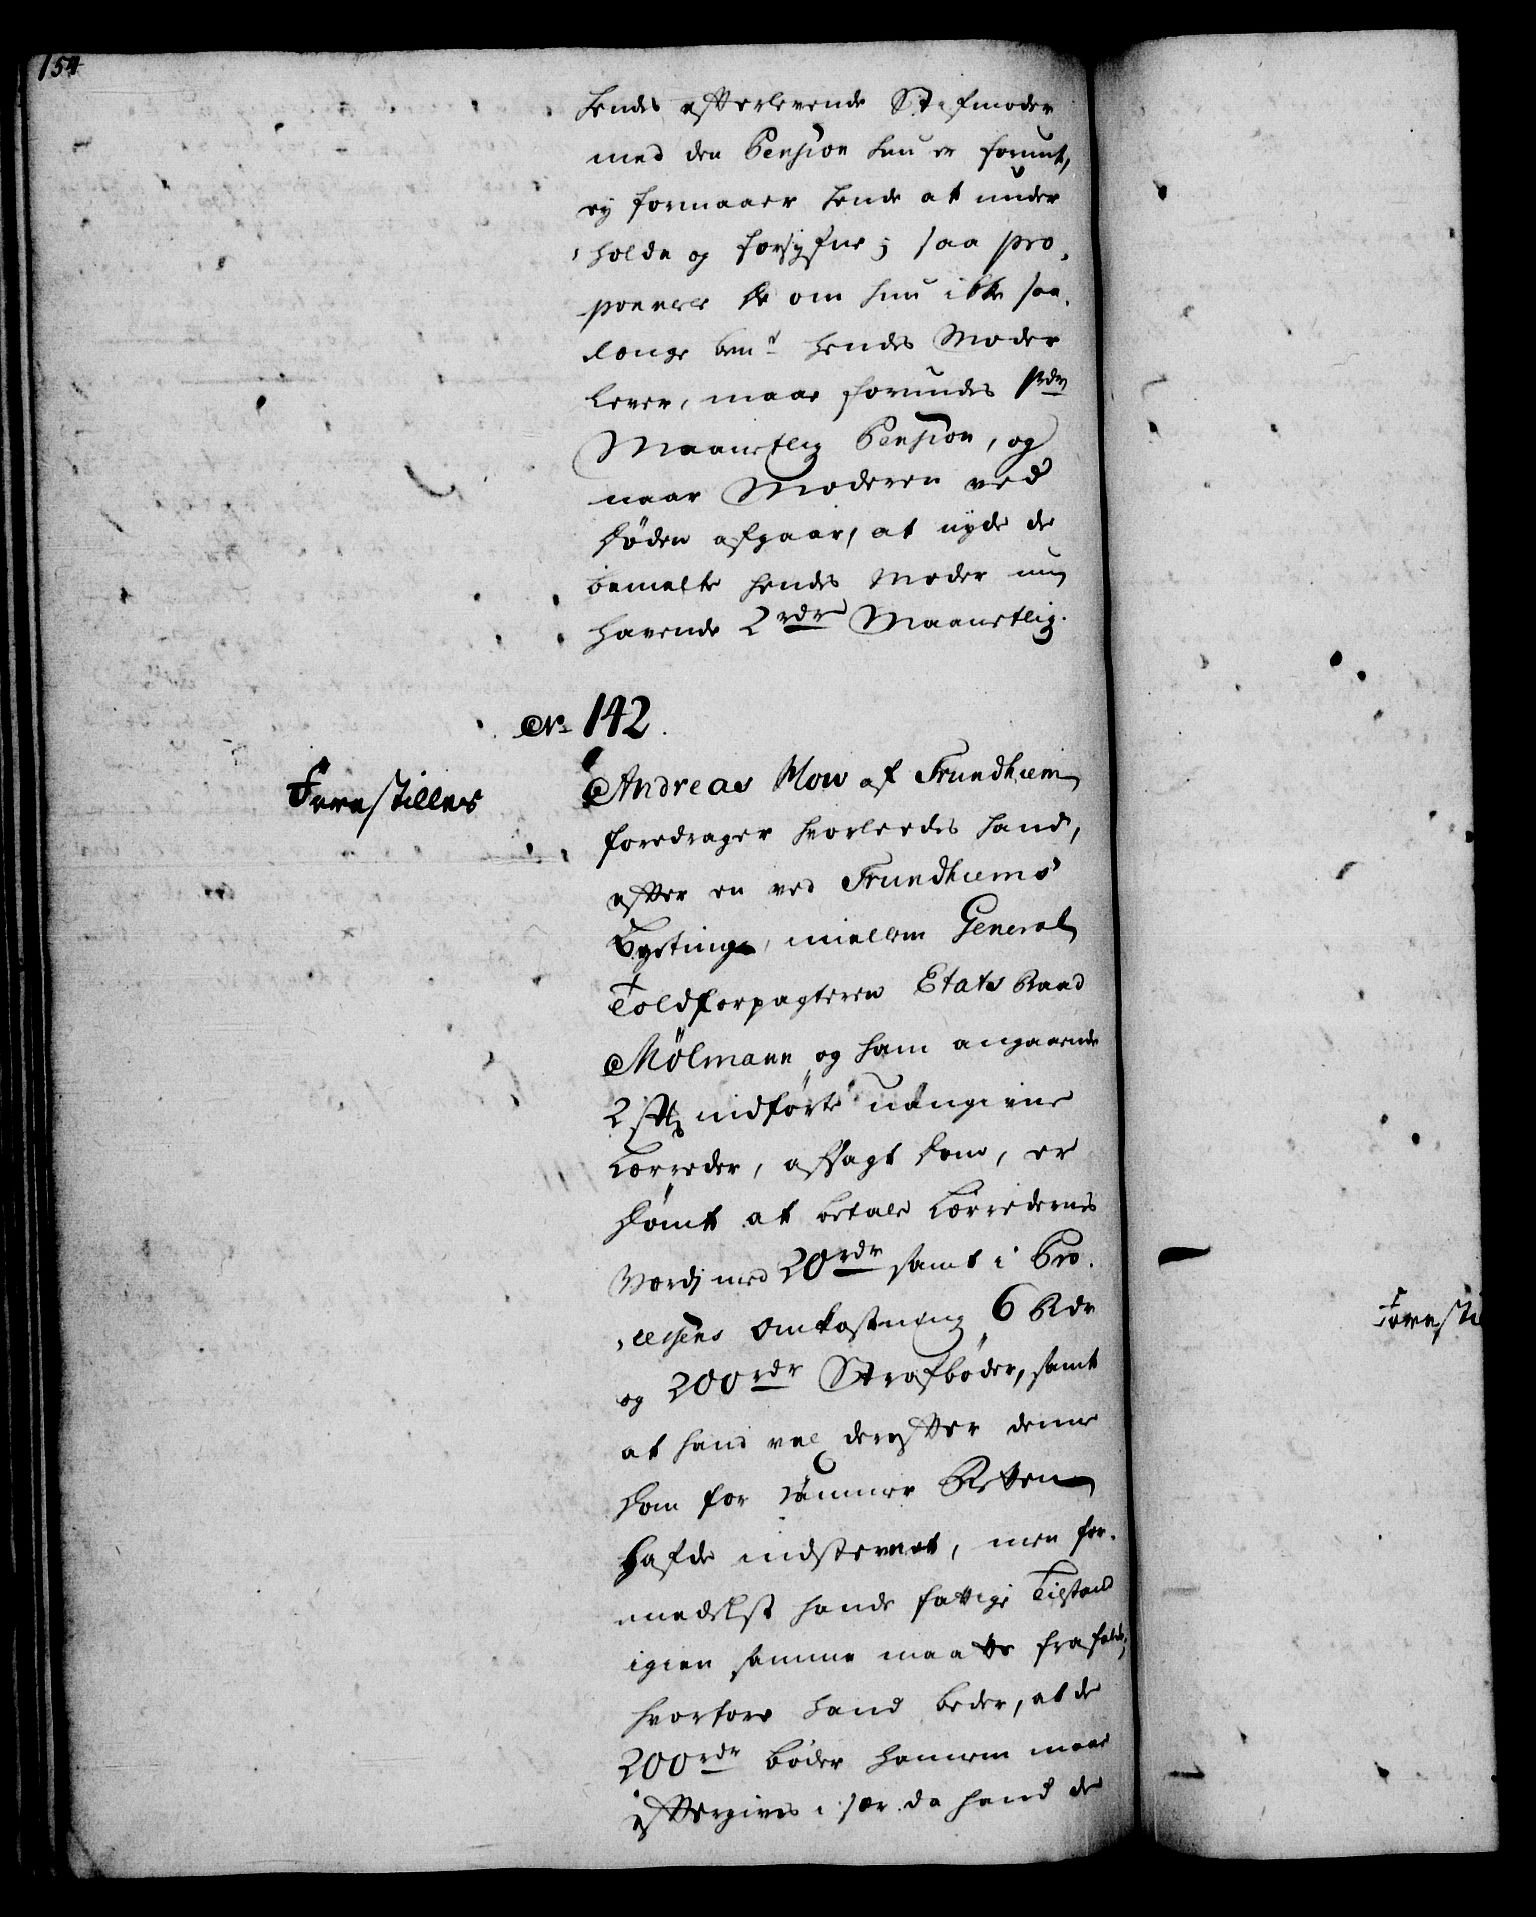 154
hendes efterlevende Stifmoder
med den Pension hun er forunt,
ey formaaer hende at under
holde og forsyfne; saa pro,
ponerer de om hun ikke saa,
længe bem.te hendes Moder
lever, maae forundes 1 rdr
Maanetlig Pension, og
naar Moderen ved
døden afgaar, at nyde de
bemelte hendes Moder nu
havende 2 rdr Maanetlig.
No 142.
Forestilles
Andreas Mow af Trundhiem
foredrager hvorleedes hand,
efter en ved Trundhiems
Bytinge, mellem General
Toldforpagteren Etats Raad
Mölmann og ham angaaende
2 st: indførte uangivne
Lærreder, afsagt dom, er
dömt at betale Lærredernes
Værdj med 20 rdr samt i Pro,
,cessens Omkostning 6 Rdr
og 200 rdr Strafbøder, samt
at hand vel derefter denne
dom for Höyere Retten
hafde indstevnet, men for,
medelst hands fattige Tilstand
igien samme maatte frafalde;
hvorfore hand beder, at de
200 rdr bøder hannem maae
eftergives i sær da hand de
Forestil